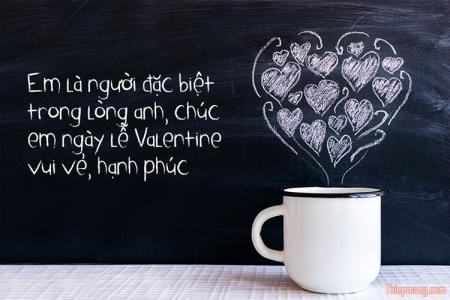 Em là người đặc biệt
trong lòng anh, chúc
em ngày lễ Valentine
vui vẻ, hạnh phúc
Thiepmung.com